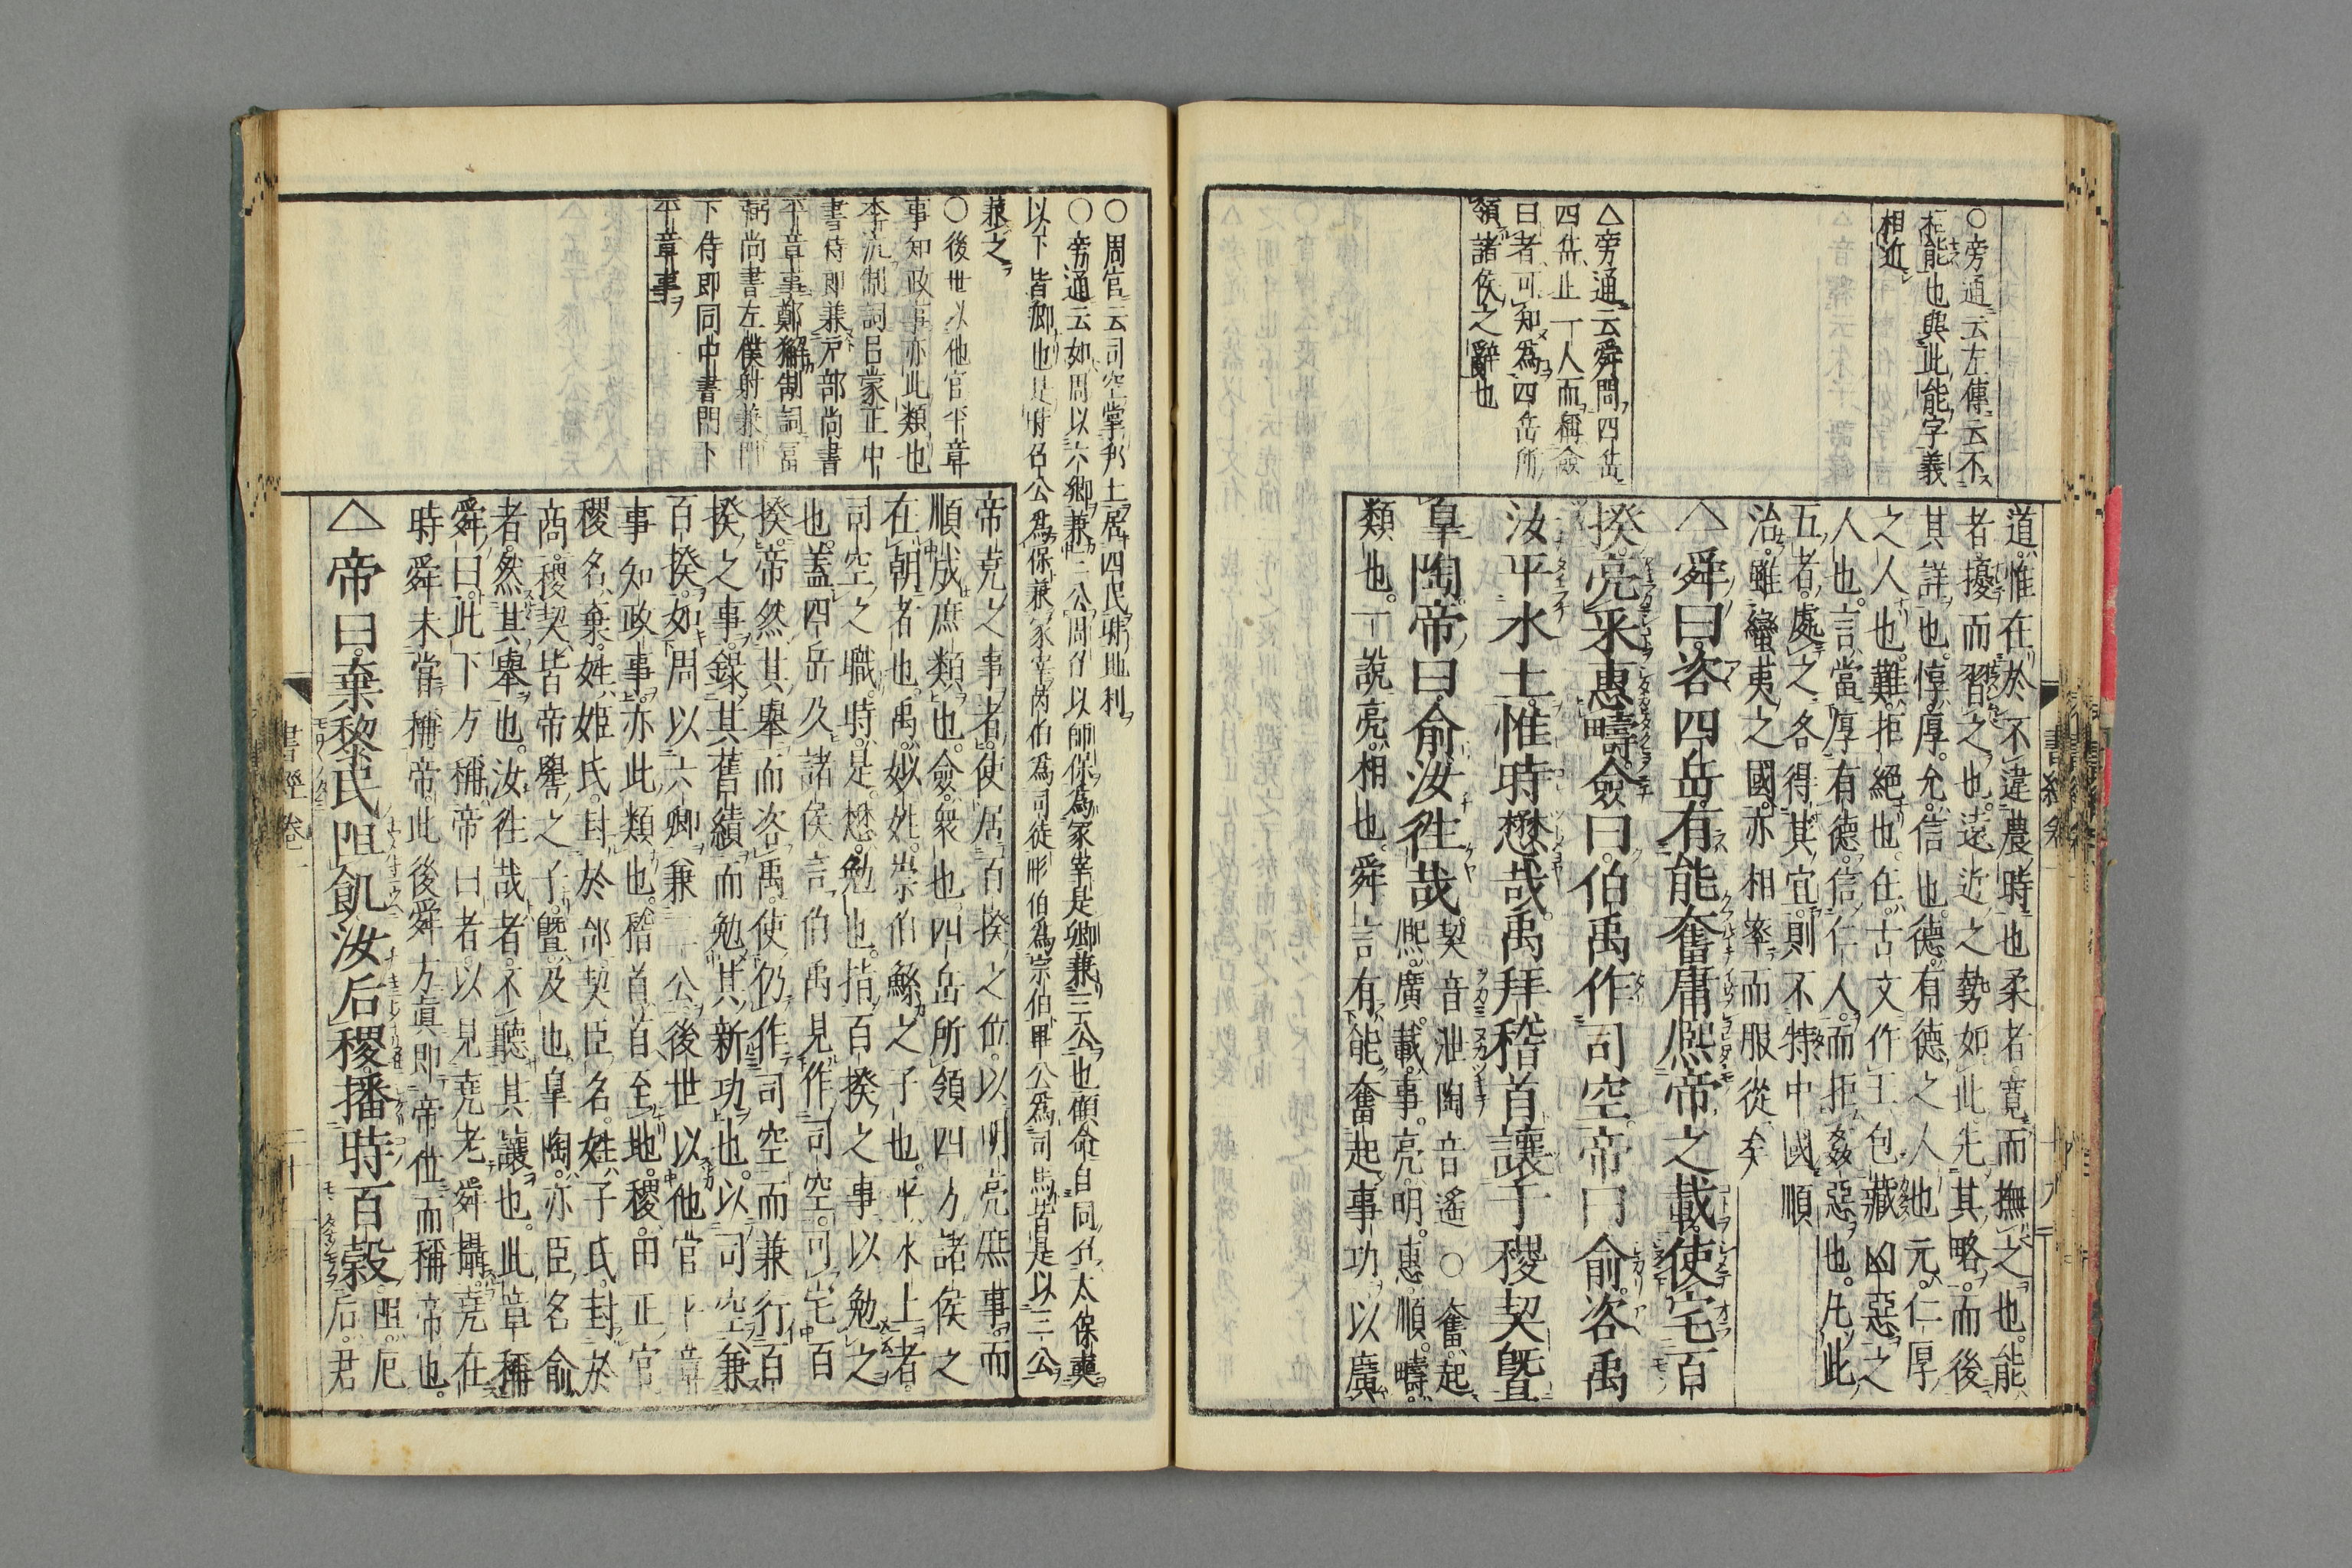 ○旁通云左傳云不
相能也與此能字義
相近
△旁通云舜問四岳
四岳止一人而稱僉
曰者可知為四岳所
領諸侯之辭也
道惟在於不違農時也柔者寬而撫之也能
者擾而習之也遠近之勢如此先其略而後
其詳也惇厚允信也德有德之人也元仁厚
之人也難拒絕也任古文作壬包藏凶惡之
人也言當厚有德信仁人而拒姦惡也凡此
五者處之各得其宜則不特中國順
治雖蠻夷之國亦相率而服從矣
△舜曰咨四岳有能奮庸熙帝之載使宅百
揆亮采惠疇僉曰伯禹作司空帝曰俞咨禹
汝平水土惟時懋哉禹拜稽首讓于稷契曁
皐陶帝曰俞汝往哉
契音泄陶音遙○奮起
熙廣載事亮明惠順疇
類也一說亮相也舜言有能奮起事功以廣
○周官云司空掌邦土居四民時地利
○旁通云如周以六卿兼三公周官以師保為冢宰是卿兼三公也顧命自同召太保奭
以下皆卿也是時召公為保兼冢宰芮伯為司徒彤伯為宗伯畢公為司馬皆是以三公
兼之
○後世以他官平章
事知政事亦此類也
李沆制詞呂蒙正中
書侍郎兼戶部尚書
平章事鄭獬制詞富
弼尚書左僕射兼門
下侍郎同中書門下
平章事
帝堯之事者使居百揆之位以明亮庶事而
順成庶類也僉衆也四岳所領四方諸侯之
在朝者也禹姒姓崇伯鯀之子也平水土者
司空之職時是懋勉也指百揆之事以勉之
也蓋四岳及諸侯言伯禹見作司空可宅百
揆帝然其舉而咨禹使仍作司空而兼行百
揆之事錄其舊績而勉其新功也以司空兼
百揆如周以六卿兼三公後世以他官平章
事知政事亦此類也稽首首至地稷田正官
稷名棄姓姬氏封於邰契臣名姓子氏封於
商稷契皆帝嚳之子曁及也皐陶亦臣名俞
者然其舉也汝往哉者不聽其讓也此章稱
舜曰此下方稱帝曰者以見堯老舜攝堯在
時舜未嘗稱帝此後舜方眞即帝位而稱帝也
△帝曰棄黎民阻飢汝后稷播時百穀
阻厄
后君
書經卷一